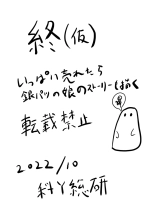 終(仮)
いっぱい売れたら
銀パツの娘のストーリーも描く
転載禁止
2022/10
料理総研